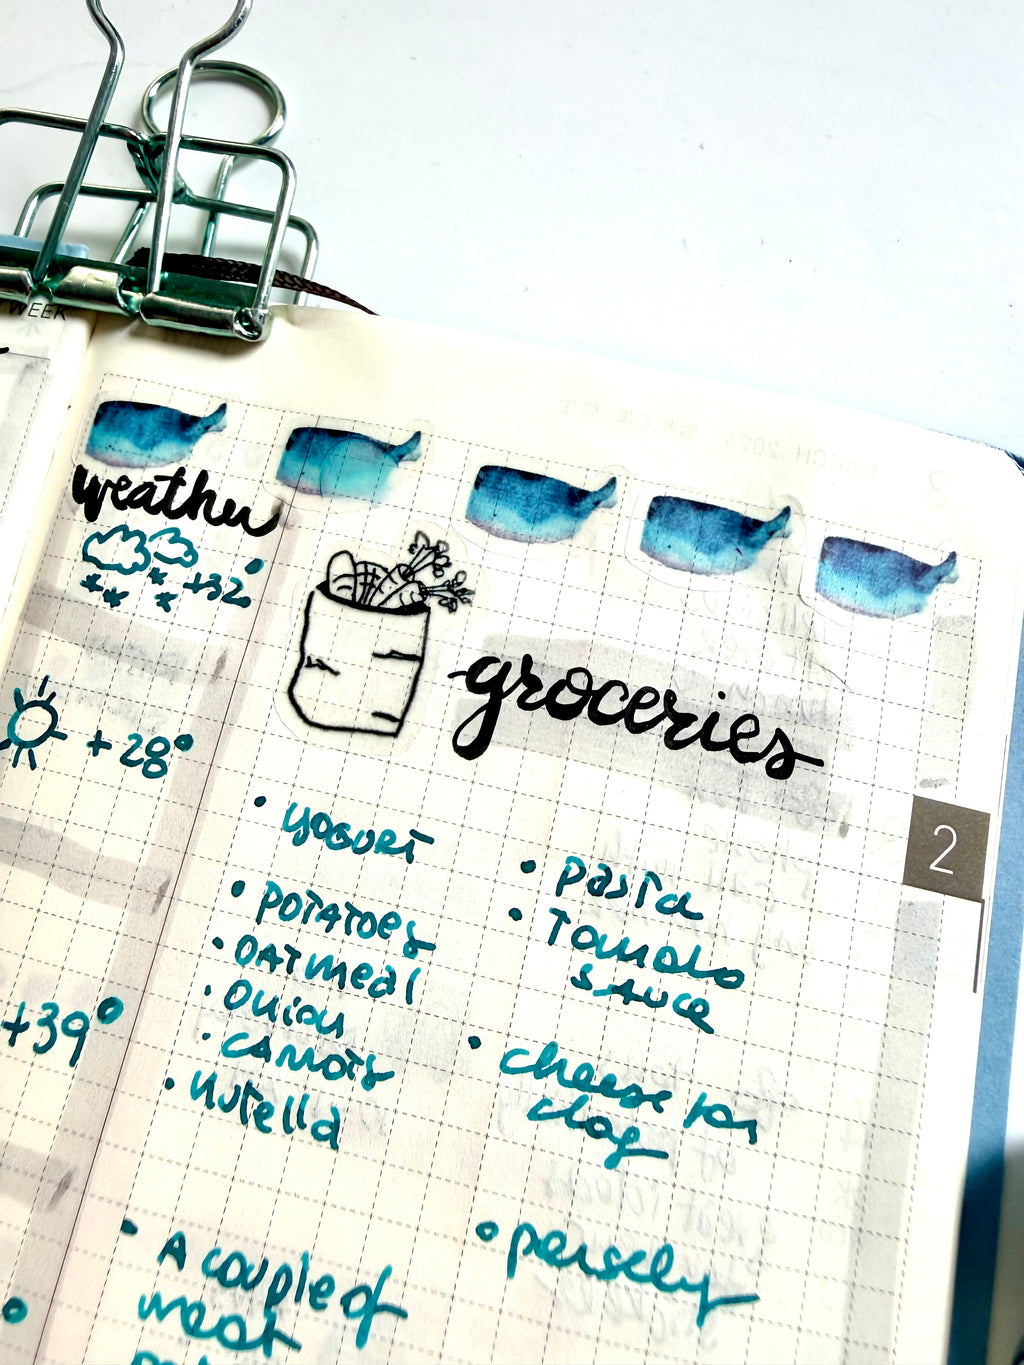 WEEK
weather
+32°
+28°
+39°
groceries
2
• yogurt
• potatoes
• oatmeal
• onion
• carrots
• Nutella
• A couple of
meat
• pasta
• Tomato
sauce
• cheese for
dog
• persely